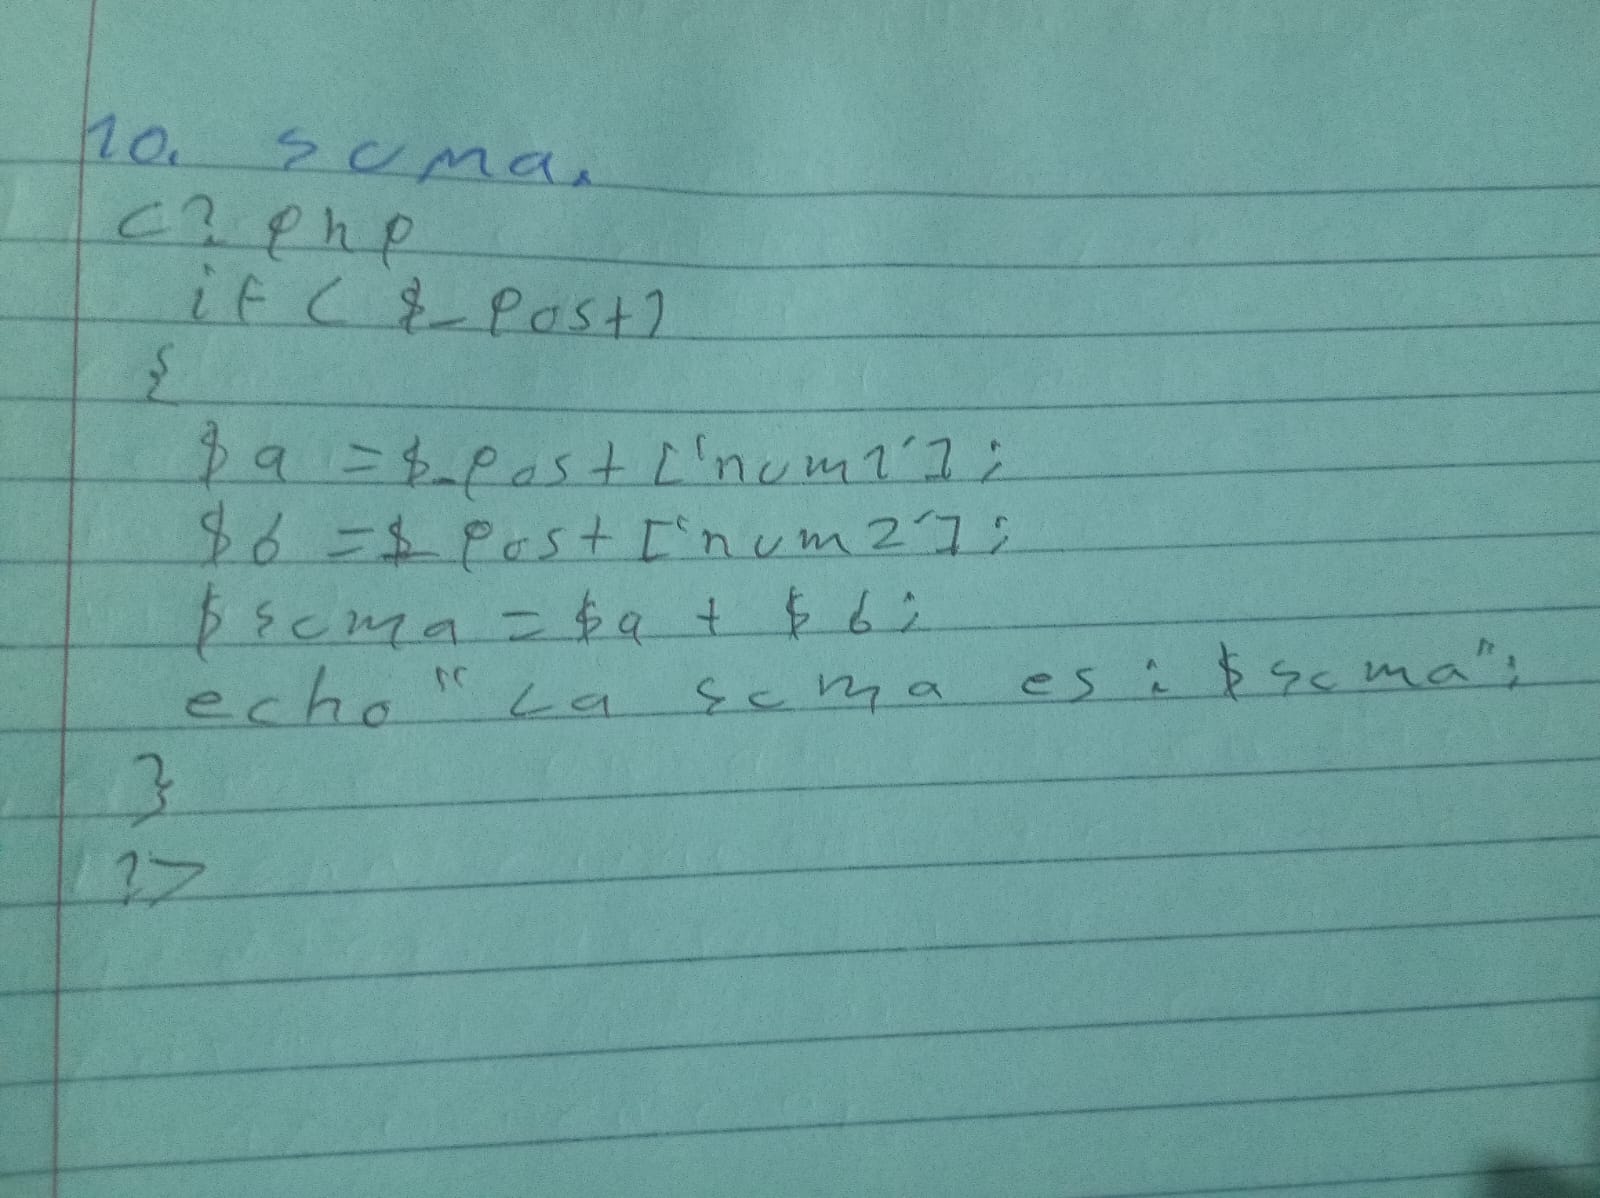 10. suma.
<?php
if ( $_Post)
{
$a = $_Post ['num1'];
$b = $_Post ['num2'];
$suma = $a + $b;
echo "La suma es: $suma";
}
?>